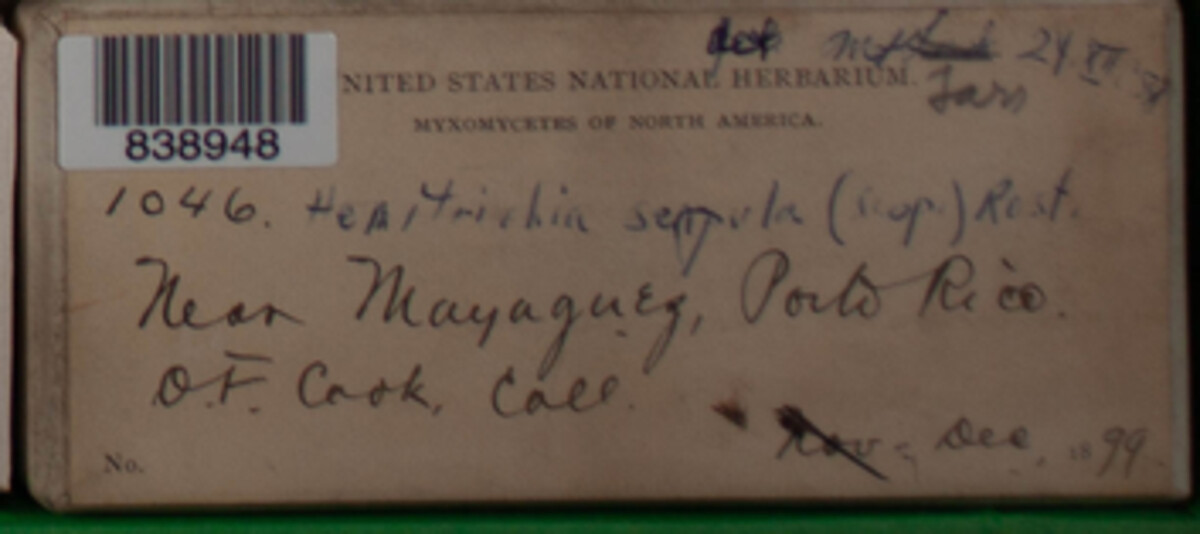 det 24 XII
NITED STATES NATIONAL HERBARIUM.
Farr
MYXOMYCETES OF NORTH AMERICA.
838948
1046. Hemitrichia serpula (Scop.) Rost.
Near Mayaguez, Porto Rico.
O.F. Cook, Coll.
Nov - Dec. 1899
No.